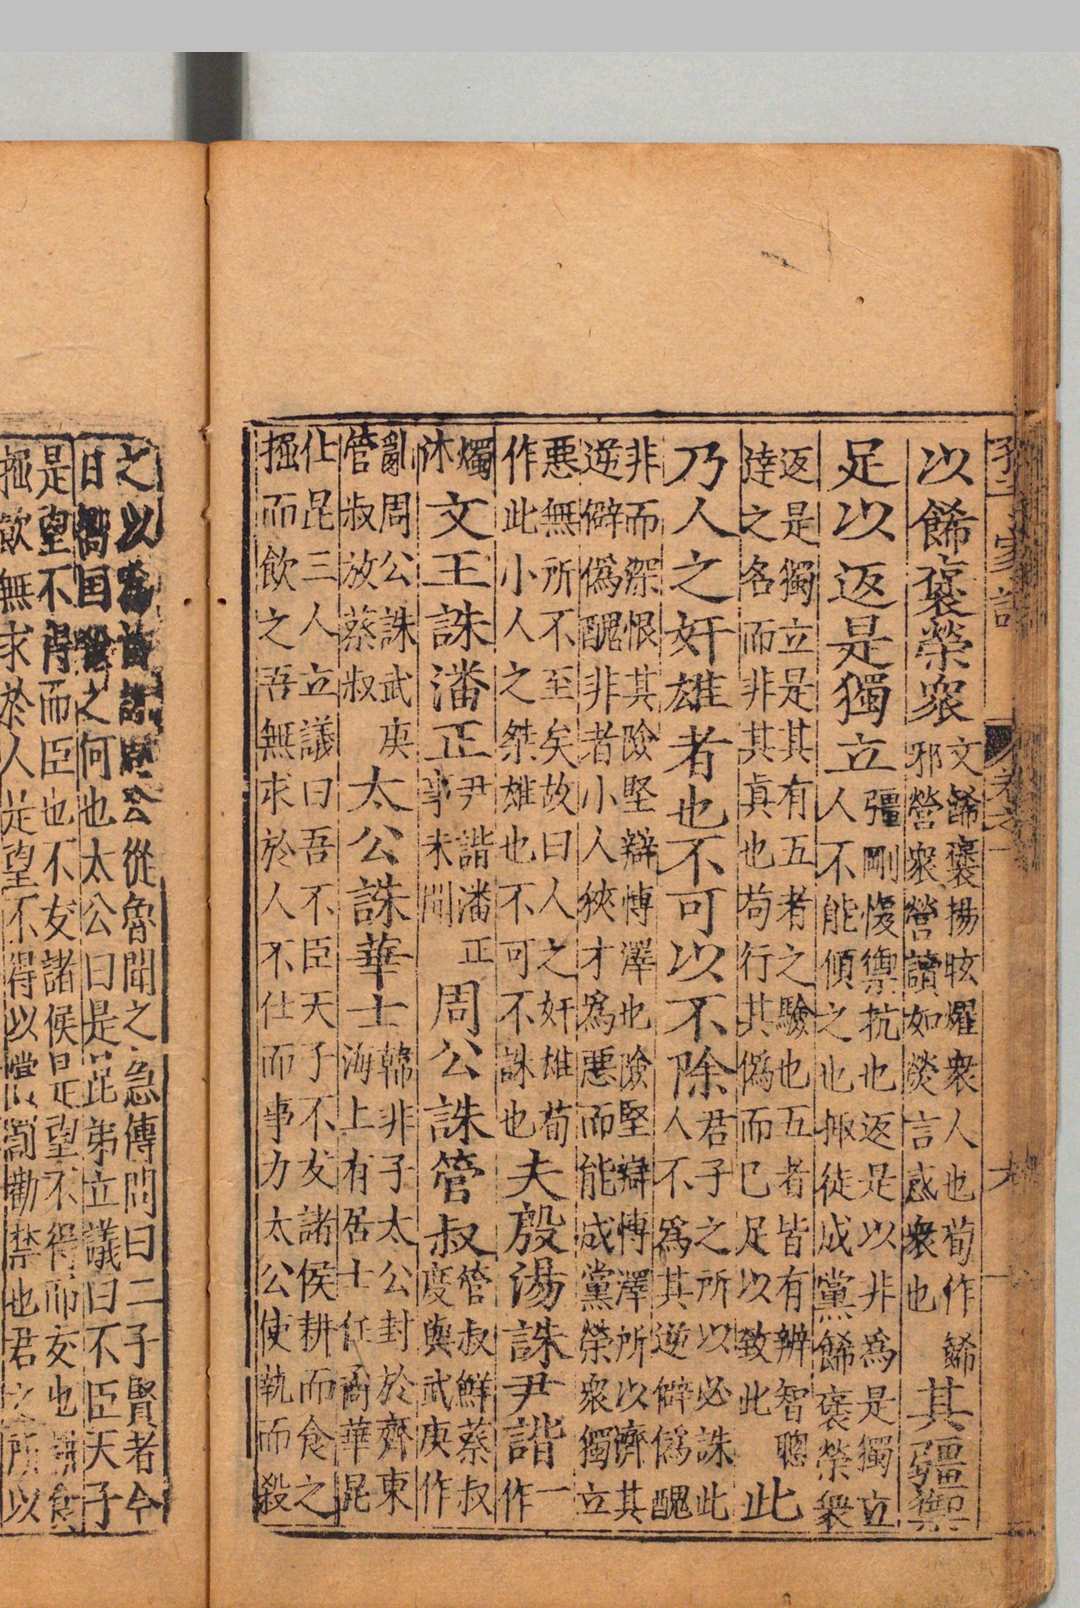 孔子家語
九
以餙褒榮衆
文餙褒揚昡耀衆人也荀作餙
邪營衆營讀如熒言惑衆也
其彊禦
足以返是獨立
彊剛愎禦抗也返是以非為是獨立
人不能傾之也掫徒成黨餙褒榮衆
返是獨立是其有五者之驗也五者皆有辨智聰
達之名而非其真也苟行其偽而已足以致此
此
乃人之奸雄者也不可以不除
君子之所以必誅此
人不為其逆僻偽醜
非而深恨其險堅辯博澤也險堅辯博澤所以濟其
逆僻偽醜非者小人狹才為惡而能成黨榮衆獨立
惡無所不至矣故曰人之奸雄荀
作此小人之桀雄也不可不誅也
夫殷湯誅尹諧
一
作
燭
沐
文王誅潘正
尹諧潘正
事未聞
周公誅管叔
管叔鮮蔡叔
度與武庚作
亂周公誅武庚
管叔放蔡叔
太公誅華士
韓非子太公封於齊東
海上有居士任矞華昆
仕昆三人立議曰吾不臣天子不友諸侯耕而食之
掘而飲之吾無求於人不仕而事力太公使執而殺
之以為首誅周公從魯聞之急傳問曰二子賢者今
日饗国殺之何也太公曰是昆弟立議曰不臣天子
是望不得而臣也不友諸候是望不得而友也耕食
掘飲無求於人是望不得以賞罰勸禁也君之所以